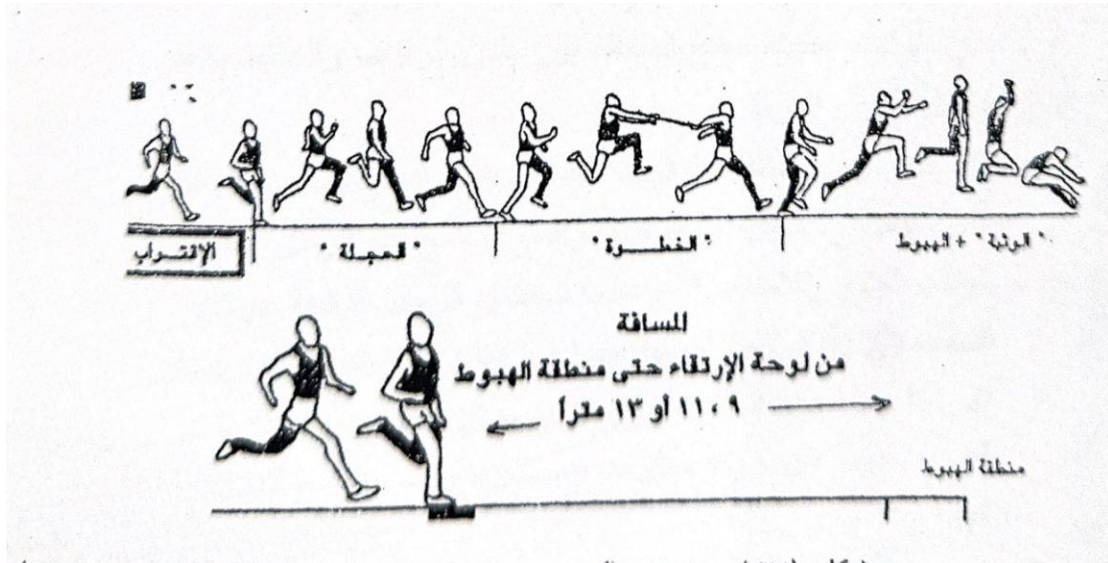 الإقتـراب
"الحجلة"
"الخطـوة"
"الوثبة" + الهبوط
المسافة
من لوحة الإرتقاء حتى منطقة الهبوط
٩ ،١١ أو ١٣ متراً
منطقة الهبوط